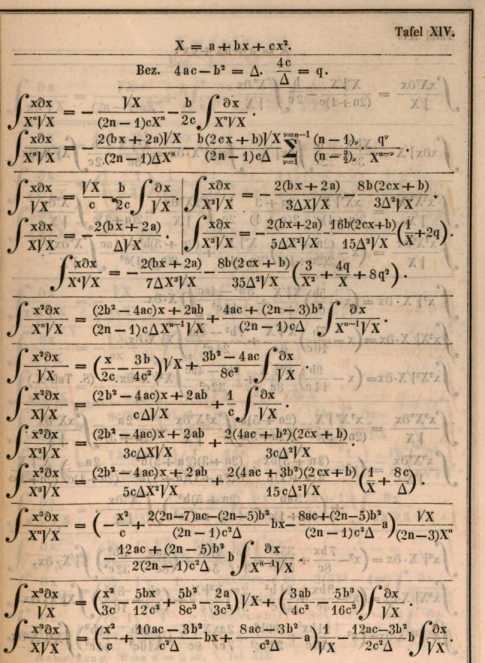 Tafel XIV.
X = a + bx + cx².
Bez. 4ac − b² = Δ. 4c/Δ = q.
∫ x∂x/(Xⁿ√X) = − √X/((2n − 1)cXⁿ) − b/2c ∫ ∂x/(Xⁿ√X).
∫ x∂x/(Xⁿ√X) = − 2(bx + 2a)√X/((2n − 1)ΔXⁿ) − b(2cx + b)√X/((2n − 1)cΔ) Σ (n − 1)ᵥ/(n − 3/2)ᵥ qᵛ/Xⁿ⁻ᵛ.
∫ x∂x/√X = √X/c − b/2c ∫ ∂x/√X. | ∫ x∂x/(X²√X) = − 2(bx + 2a)/(3ΔX√X) − 8b(2cx + b)/(3Δ²√X).
∫ x∂x/(X√X) = − 2(bx + 2a)/(Δ√X). | ∫ x∂x/(X³√X) = − 2(bx+2a)/(5ΔX²√X) − 16b(2cx+b)/(15Δ²√X) (1/X + 2q).
∫ x∂x/(X⁴√X) = − 2(bx + 2a)/(7ΔX³√X) − 8b(2cx + b)/(35Δ²√X) (3/X² + 4q/X + 8q²).
∫ x²∂x/(Xⁿ√X) = ((2b² − 4ac)x + 2ab)/((2n − 1)cΔXⁿ⁻¹√X) + (4ac + (2n − 3)b²)/((2n − 1)cΔ) ∫ ∂x/(Xⁿ⁻¹√X).
∫ x²∂x/√X = (x/2c − 3b/4c²)√X + (3b² − 4ac)/8c² ∫ ∂x/√X.
∫ x²∂x/(X√X) = ((2b² − 4ac)x + 2ab)/(cΔ√X) + 1/c ∫ ∂x/√X.
∫ x²∂x/(X²√X) = ((2b² − 4ac)x + 2ab)/(3cΔX√X) + 2(4ac + b²)(2cx + b)/(3cΔ²√X).
∫ x²∂x/(X³√X) = ((2b² − 4ac)x + 2ab)/(5cΔX²√X) + 2(4ac + 3b²)(2cx + b)/(15cΔ²√X) (1/X + 8c/Δ).
∫ x³∂x/(Xⁿ√X) = (− x²/c + (2(2n−7)ac−(2n−5)b²)/((2n − 1)c²Δ) bx − (8ac+(2n−5)b²)/((2n − 1)c²Δ) a) √X/((2n−3)Xⁿ)
− (12ac + (2n − 5)b²)/(2(2n − 1)c²Δ) b ∫ ∂x/(Xⁿ⁻¹√X).
∫ x³∂x/√X = (x²/3c − 5bx/12c² + 5b²/8c³ − 2a/3c²)√X + (3ab/4c² − 5b³/16c³) ∫ ∂x/√X.
∫ x³∂x/(X√X) = (x²/c + (10ac − 3b²)/c²Δ bx + (8ac − 3b²)/c²Δ a) 1/√X − (12ac−3b²)/2c²Δ b ∫ ∂x/√X.